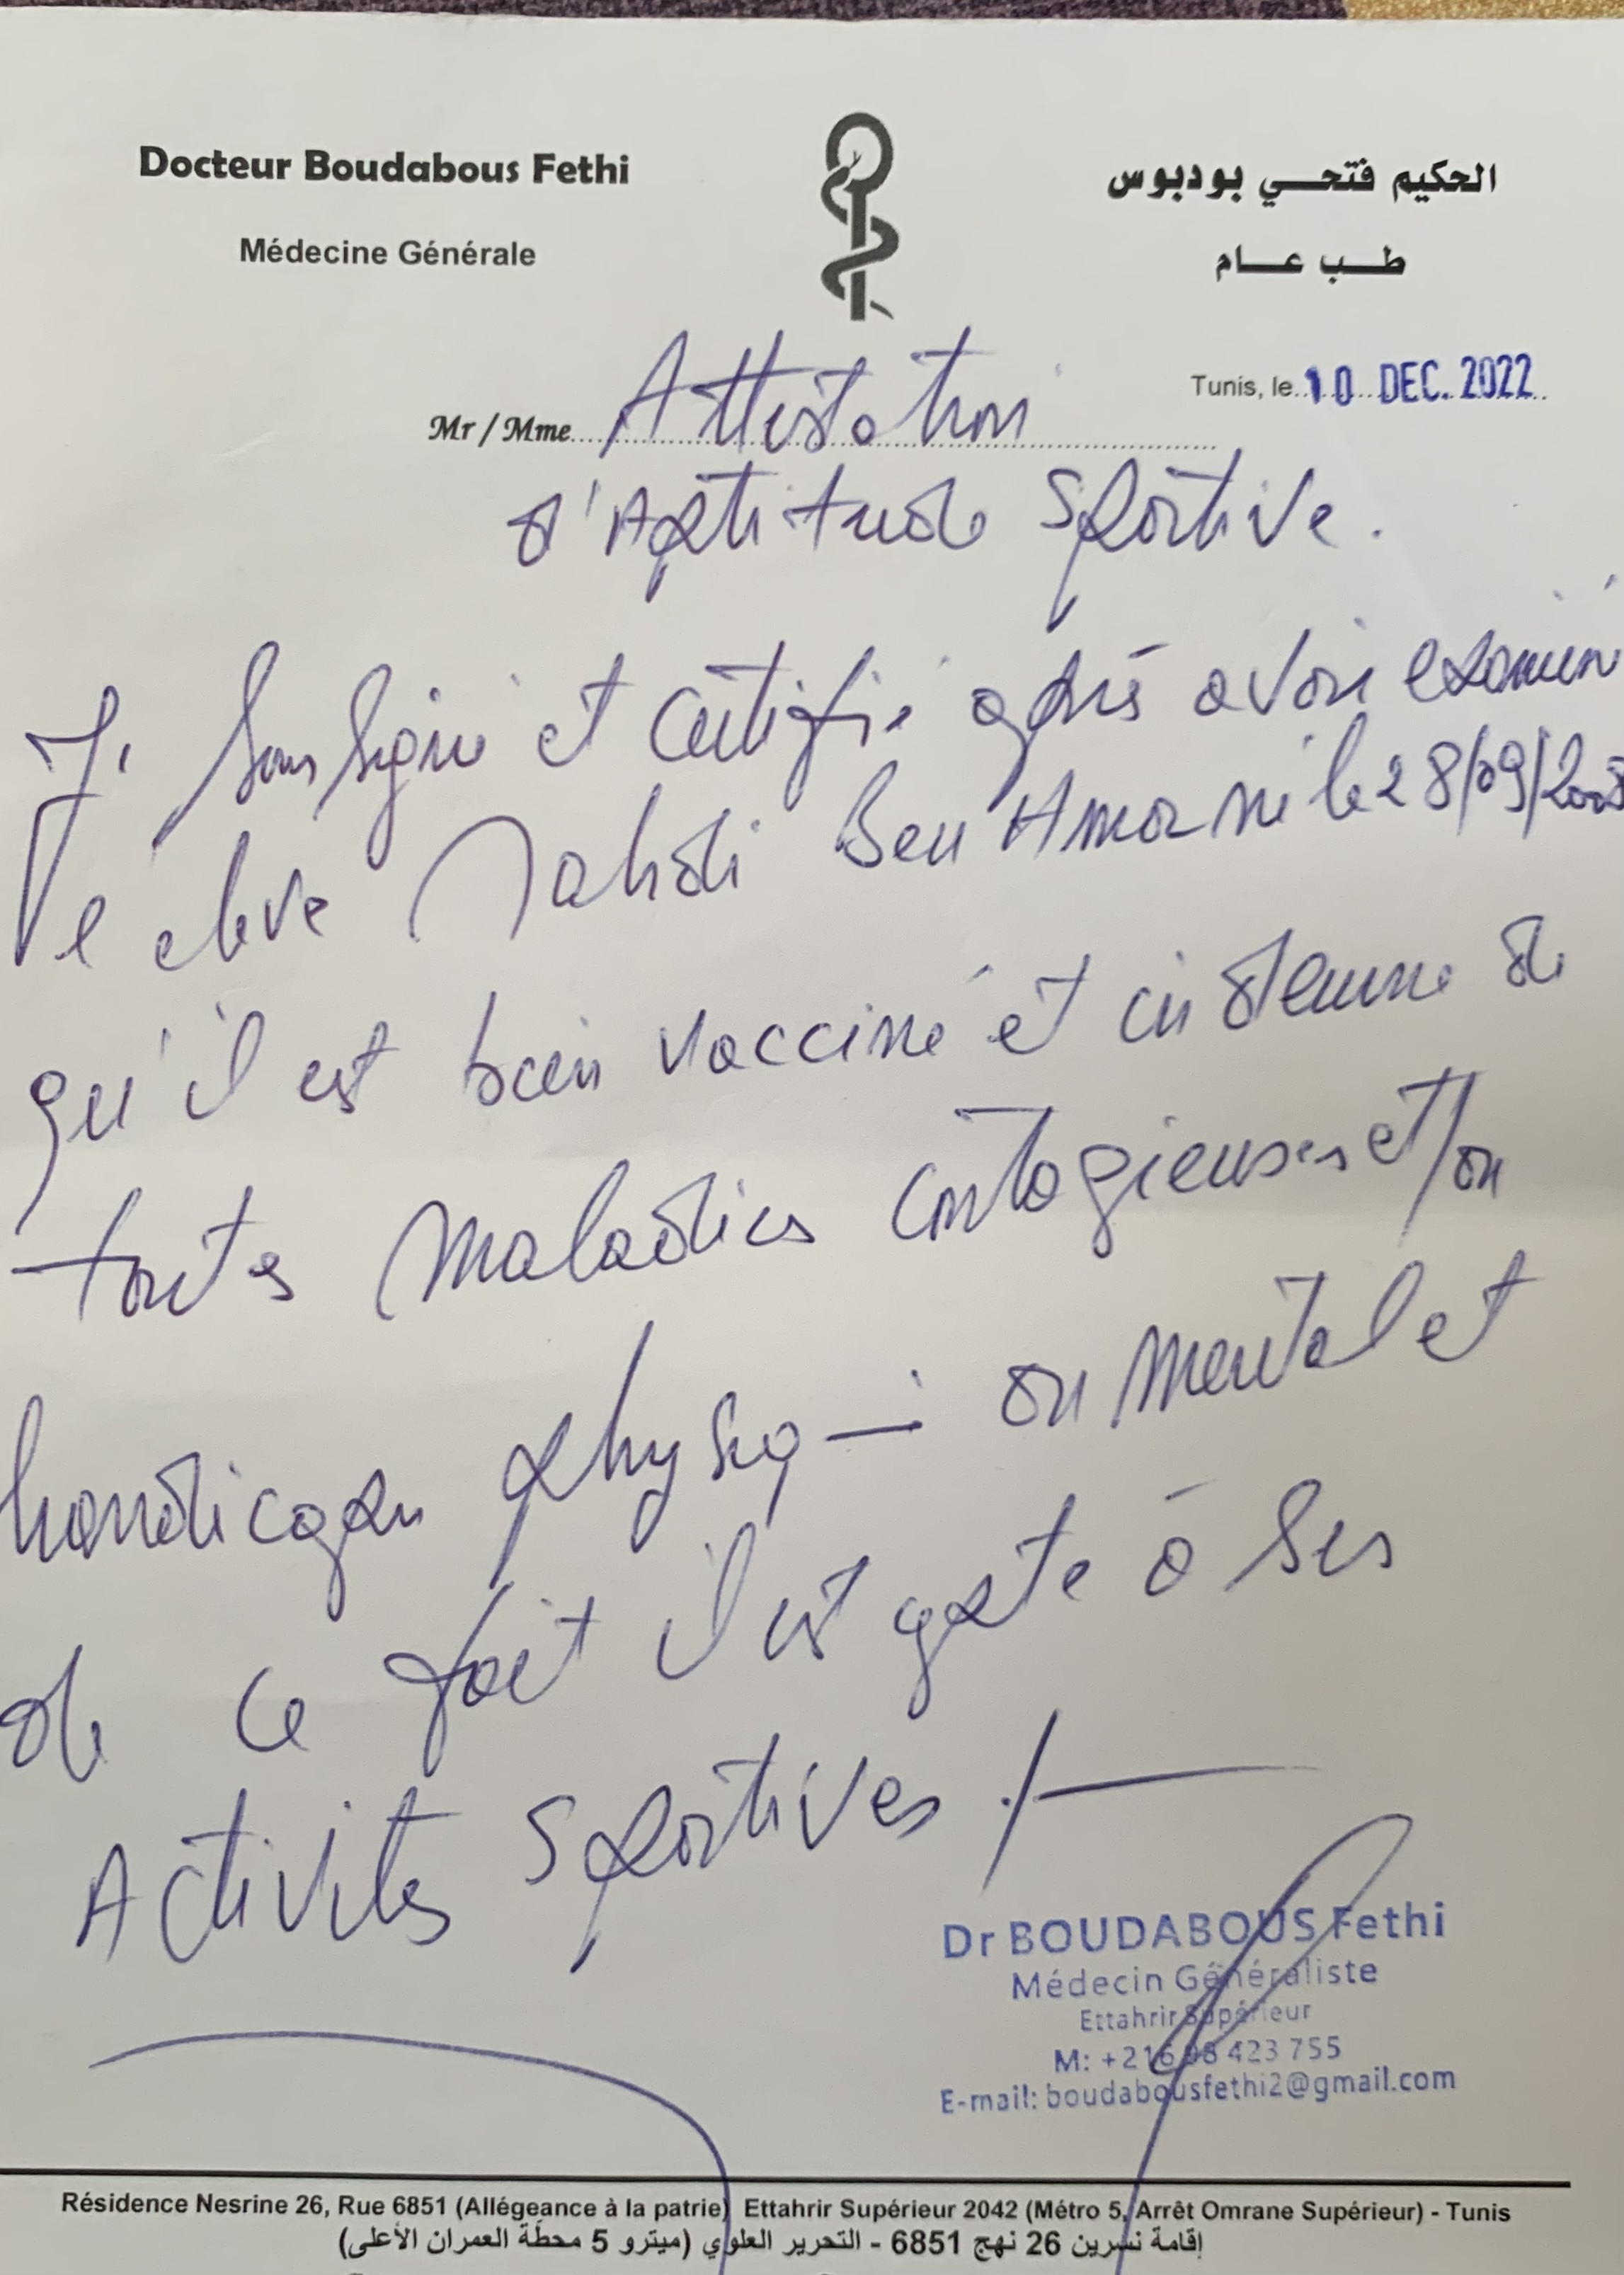 Docteur Boudabous Fethi
Médecine Générale
الحكيم فتحي بودبوس
طب عام
Tunis, le 10 DEC. 2022
Mr / Mme Attestation
d'Aptitude Sportive.
Je soussigné et certifie après avoir examiné
l'élève Mahdi Ben Amor né le 28/09/2008
qu'il est bien vacciné et indemne de
toutes maladies contagieuses et/ou
handicapes physiq— ou mental et
de ce fait il est apte à ses
Activités Sportives ./—
Dr BOUDABOUS Fethi
Médecin Généraliste
Ettahrir Supérieur
M: +216 98 423 755
E-mail: boudabousfethi2@gmail.com
Résidence Nesrine 26, Rue 6851 (Allégeance à la patrie) Ettahrir Supérieur 2042 (Métro 5, Arrêt Omrane Supérieur) - Tunis
إقامة نسرين 26 نهج 6851 - التحرير العلوي (ميترو 5 محطّة العمران الأعلى)